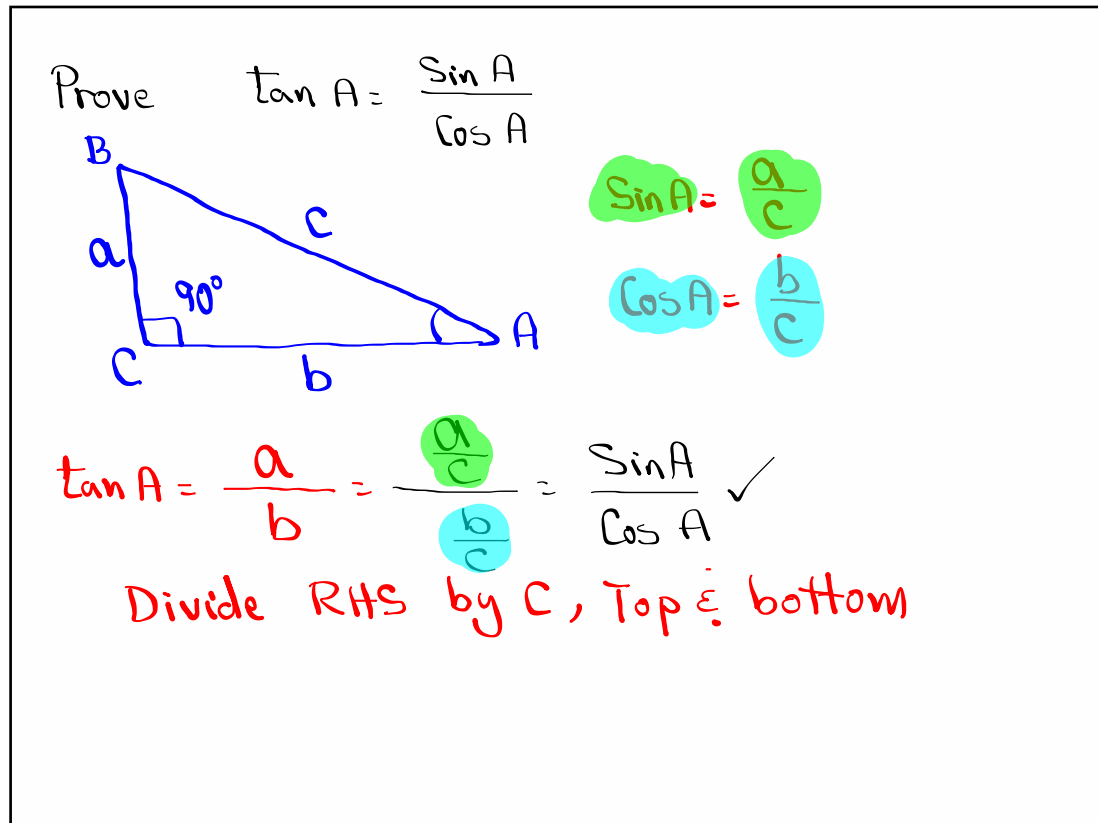 Prove tan A = Sin A / Cos A
B
Sin A = a/c
a
c
90°
Cos A = b/c
C
b
A
tan A = a/b = (a/c)/(b/c) = Sin A / Cos A ✓
Divide RHS by C, Top & bottom